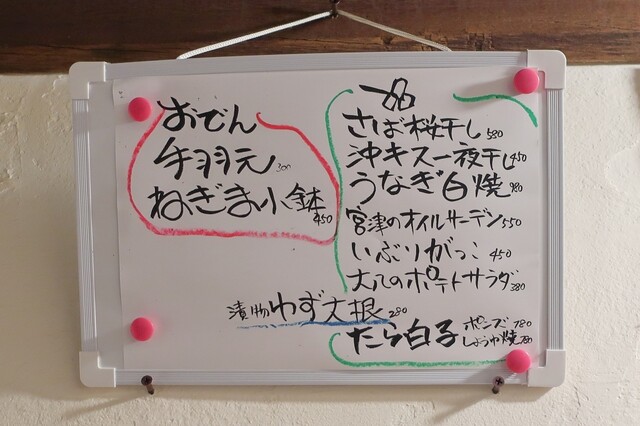 おでん
手羽元 300
ねぎま小鉢 450
さば桜干し 580
沖キス一夜干し 450
うなぎ白焼 980
宮津のオイルサーデン 550
いぶりがっこ 450
大人のポテトサラダ 380
漬物 ゆず大根 280
たら白子 ポンズ 780
しょうゆ焼 780